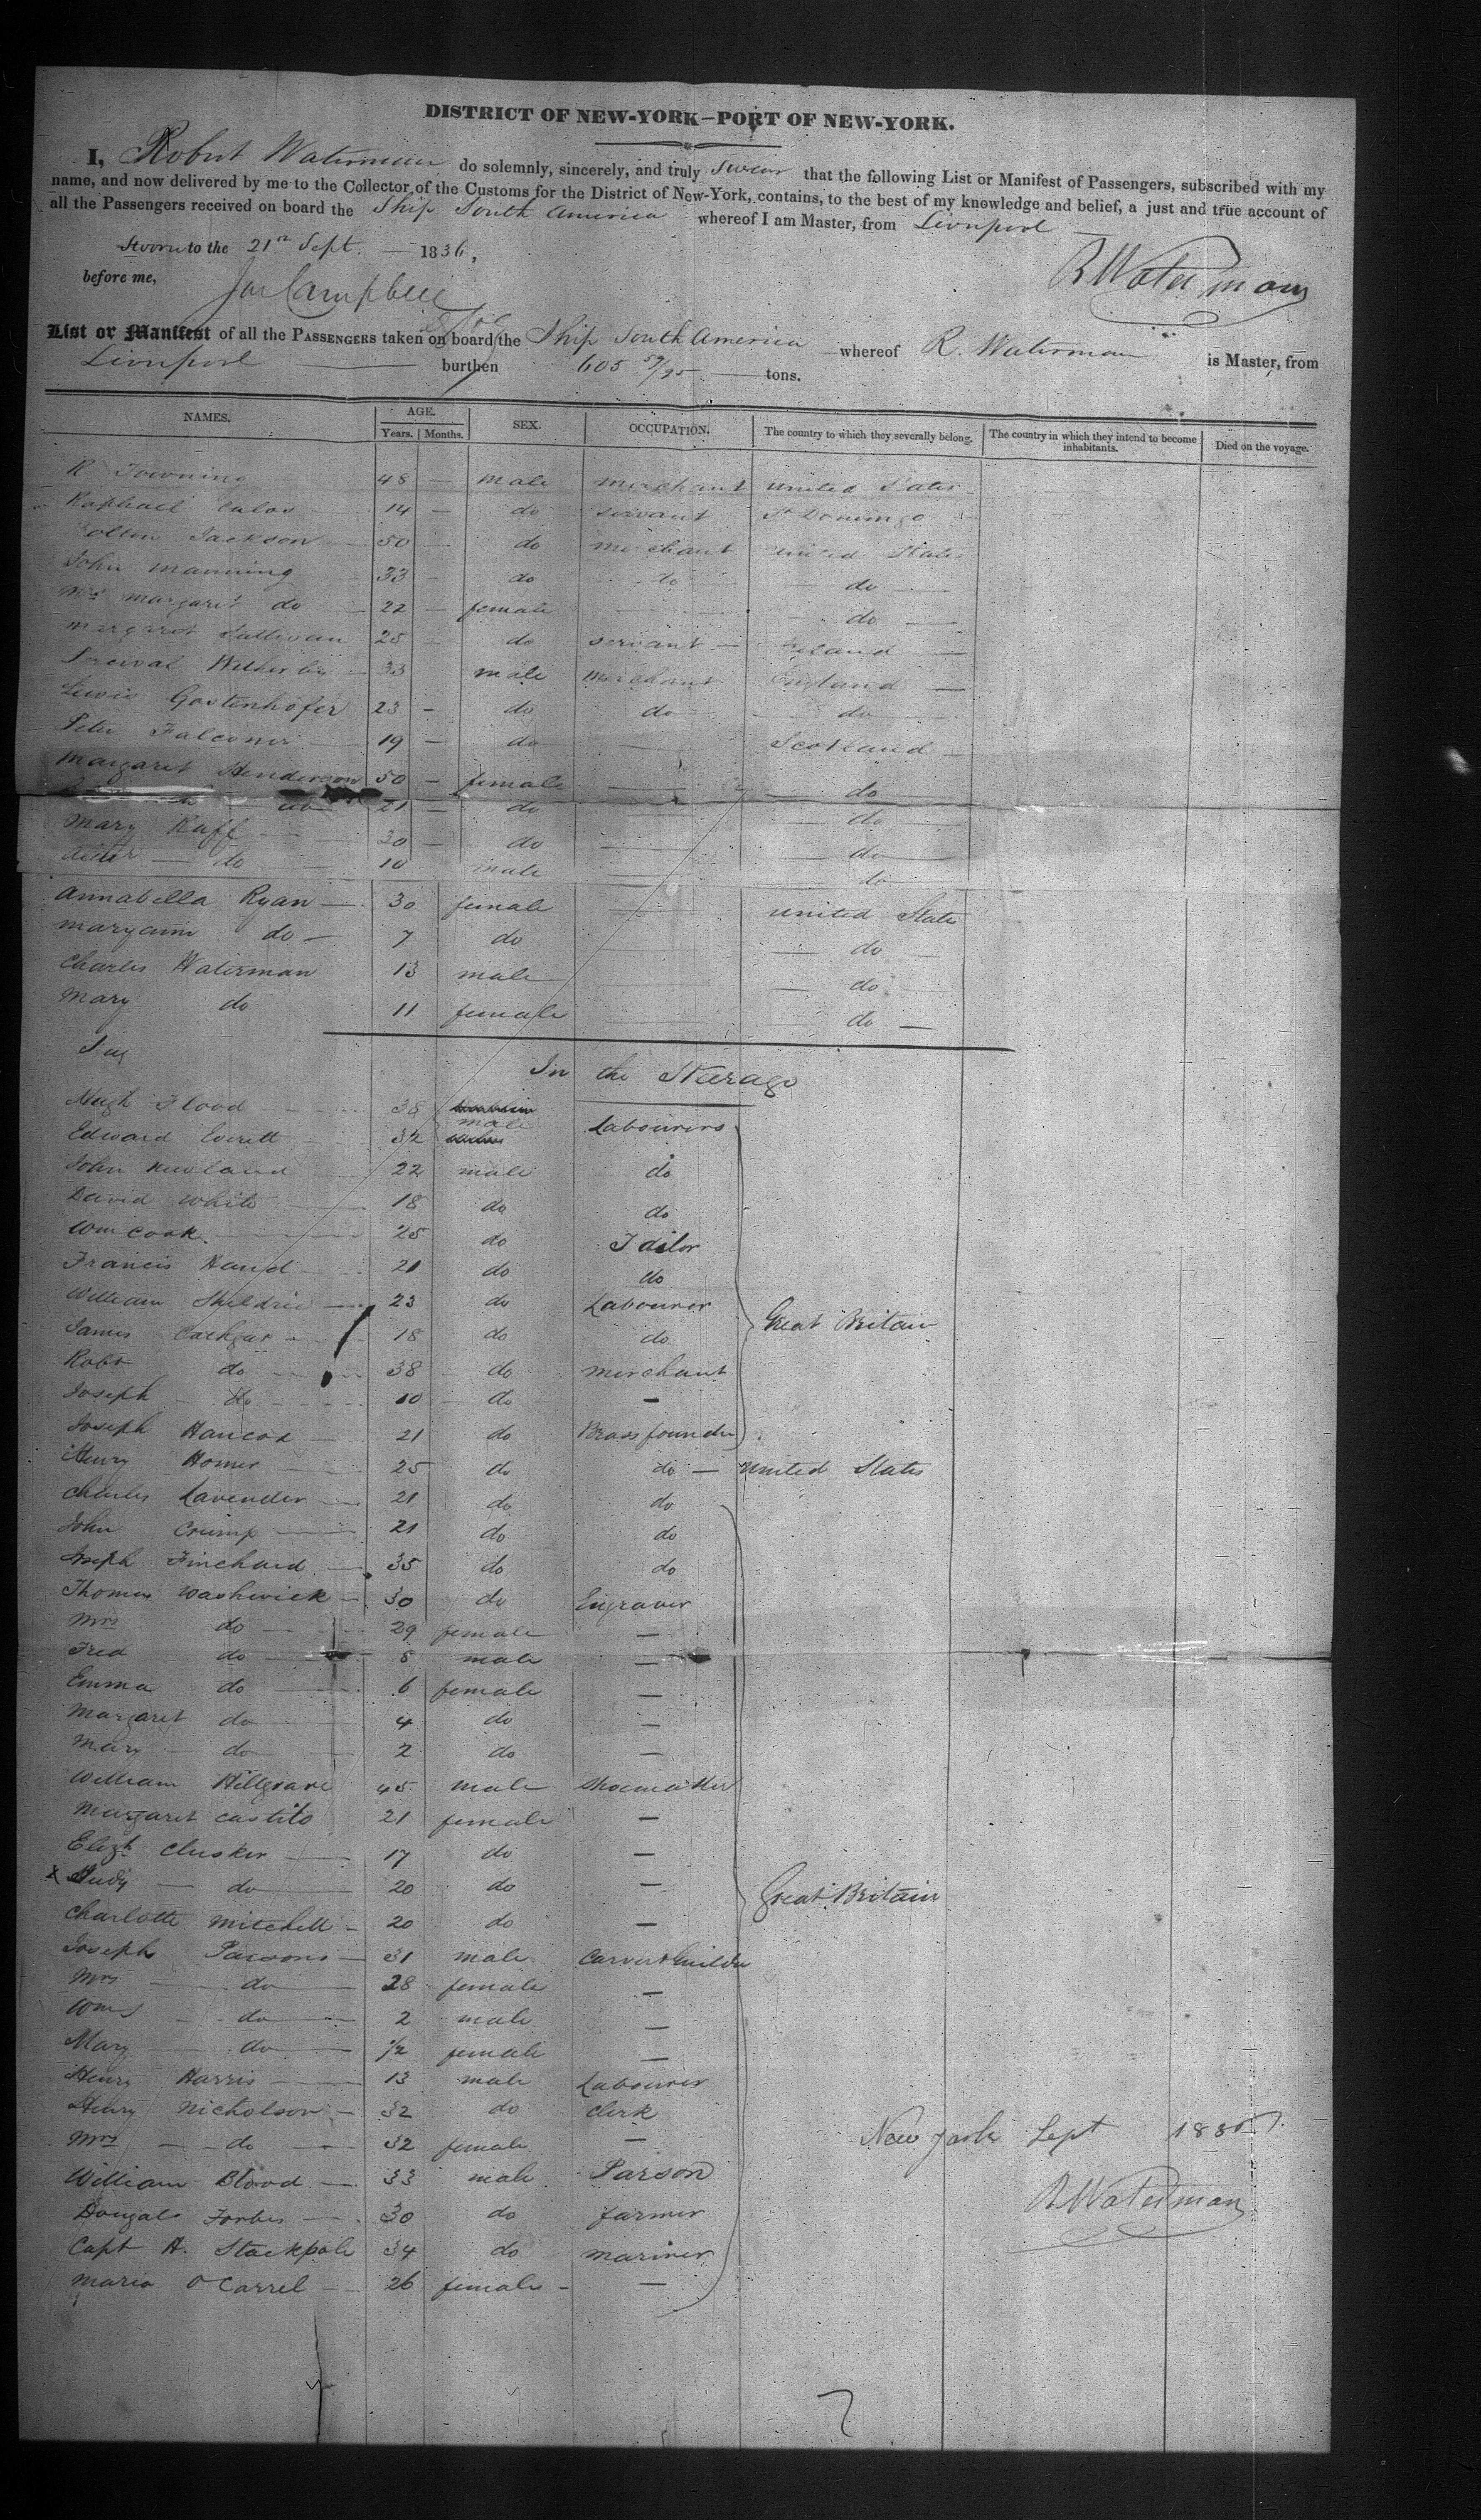 DISTRICT OF NEW-YORK–PORT OF NEW-YORK.
I, Robert Waterman do solemnly, sincerely, and truly swear that the following List or Manifest of Passengers, subscribed with my
name, and now delivered by me to the Collector of the Customs for the District of New-York, contains, to the best of my knowledge and belief, a just and true account of
all the Passengers received on board the Ship South America whereof I am Master, from Liverpool
Sworn to the 21st Sept. 1836,
before me, Jas Campbell
R Waterman
List or Manifest of all the PASSENGERS taken on board the Ship South America whereof R. Waterman is Master, from
Liverpool burthen 605 59/95 tons.
NAMES. AGE. Years. Months. SEX. OCCUPATION. The country to which they severally belong. The country in which they intend to become inhabitants. Died on the voyage.
R 48 male merchant United States
Raphael 14 do servant St Domingo
Jackson 50 do merchant United States
John Manning 33 do do do
Mrs Margaret do 22 female do
Margaret Sullivan 25 do servant Ireland
Percival 33 male merchant England
Lewis Gostenhofer 23 do do do
Peter Falconer 19 do Scotland
Margaret Henderson 50 female do
do 21 do do
Mary Ruff 30 do do
do 10 male do
Annabella Ryan 30 female United States
Maryann do 7 do do
Charles Waterman 13 male do
Mary do 11 female do
In the Steerage
Hugh Flood 38 male Labourers
Edward Everett 32
John Newland 22 male do
David White 18 do do
Wm Cook 25 do Tailor
Francis Hand 21 do do
William 23 do Labourer Great Britain
James 18 do do
Robt do 38 do merchant
Joseph do 10 do –
Joseph Hancox 21 do Brassfounder
Henry Homer 25 do do United States
Charles Lavender 21 do do
John Crump 21 do do
Joseph Finchard 35 do do
Thomas Washwick 30 do Engraver
Mrs do 29 female –
Fred do 8 male –
Emma do 6 female –
Margaret do 4 do –
Mary do 2 do –
William Hillgrave 45 male Shoemaker
Margaret Castito 21 female –
Elizh Clusker 17 do –
x Judy do 20 do – Great Britain
Charlotte Mitchell 20 do –
Joseph Parsons 31 male Carver & Guilder
Mrs do 28 female –
Wm do 2 male –
Mary do 1/2 female –
Henry Harris 13 male Labourer
Henry Nicholson 32 do Clerk
Mrs do 32 female –
New York Sept
William Blood 33 male Parson
R Waterman
Dougal Forbes 30 do farmer
Capt H. Stackpole 34 do mariner
Maria O Carrel 26 female –